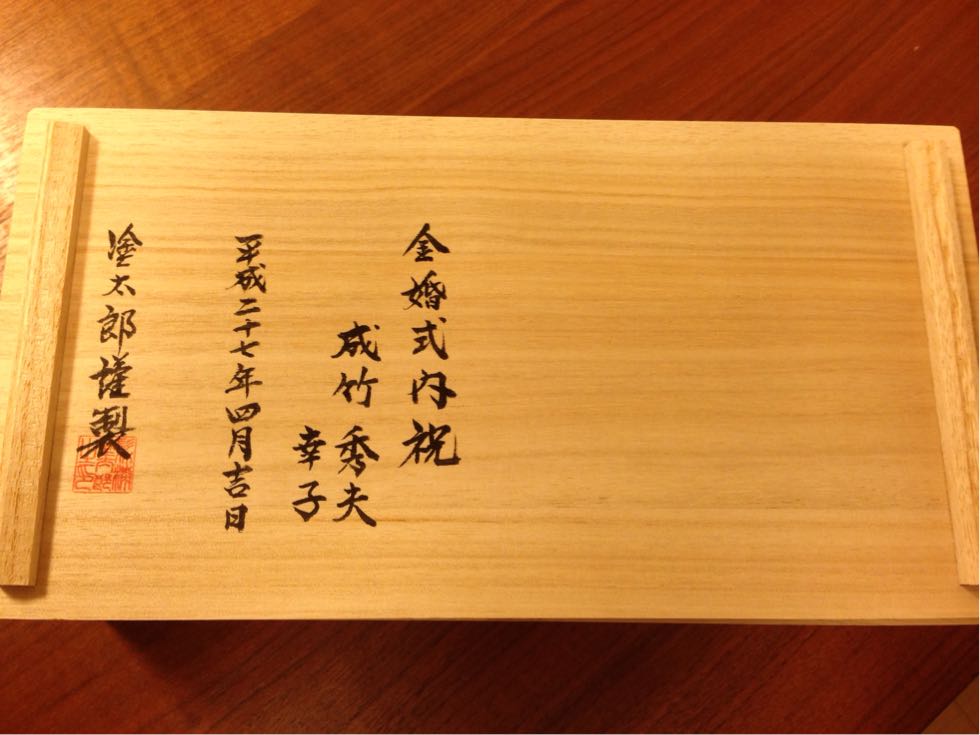 金婚式内祝
成竹 秀夫
幸子
平成二十七年四月吉日
塗太郎謹製